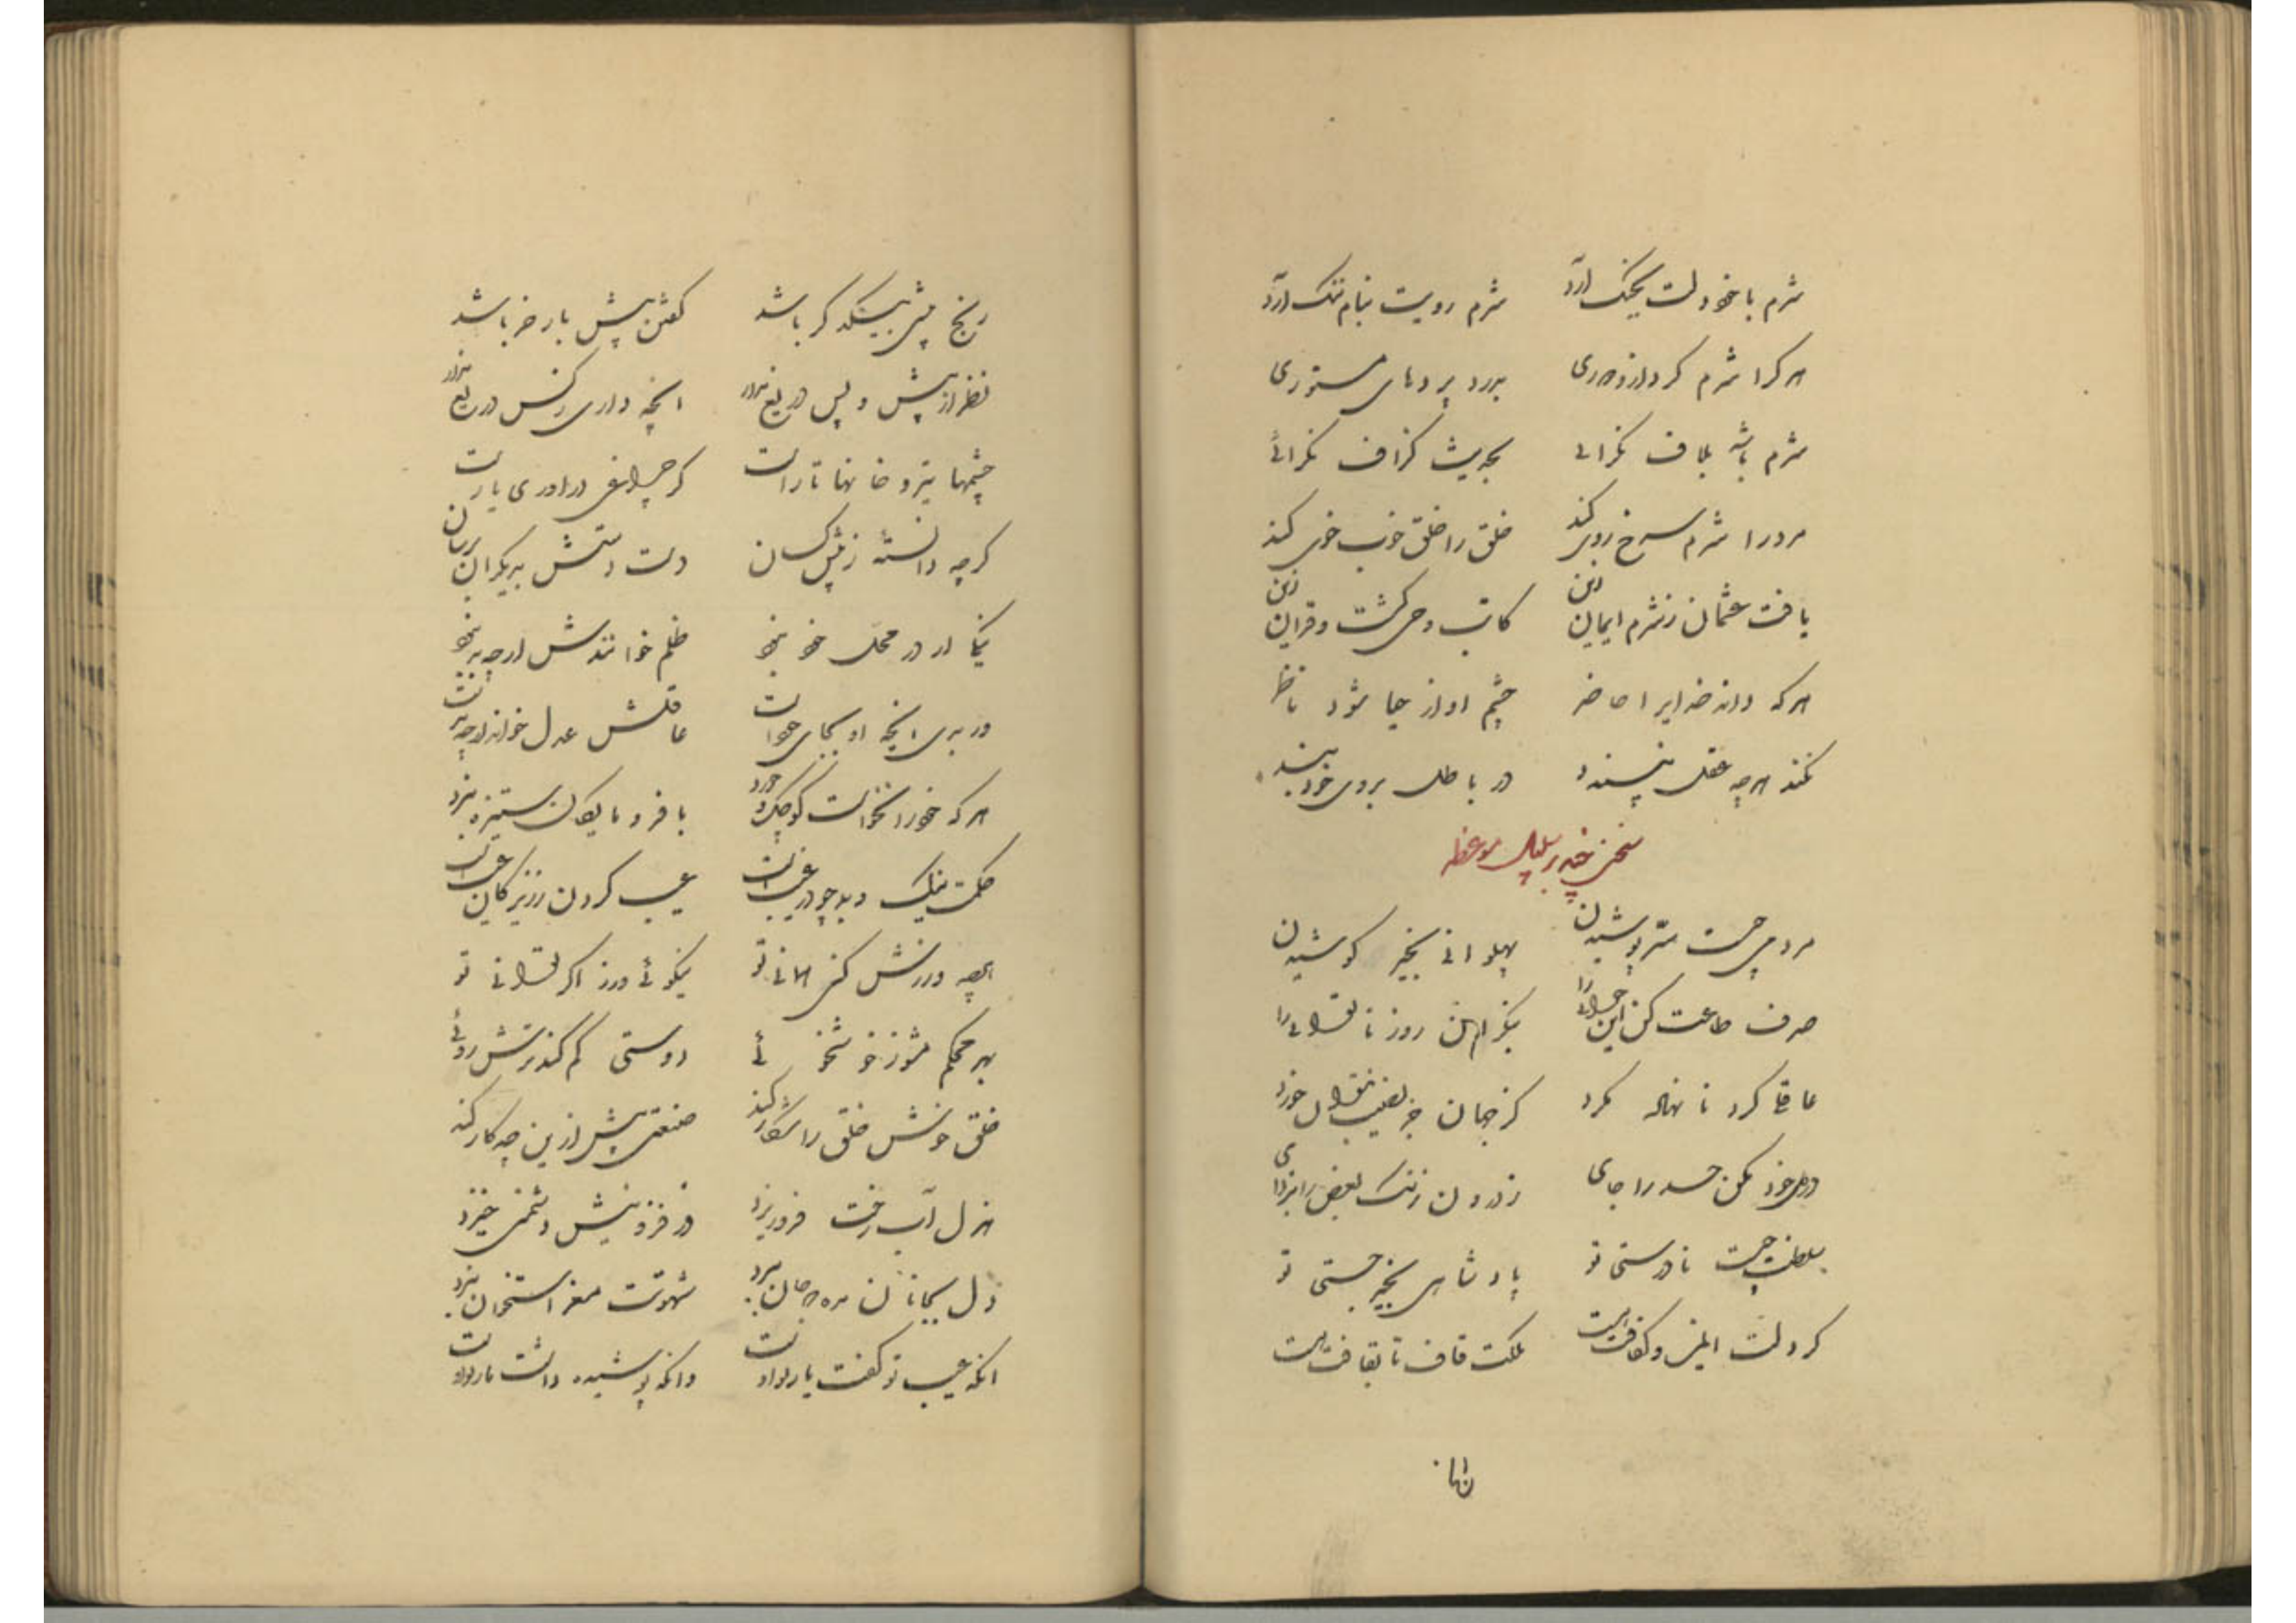 شرم با خود دلت بچنک آرد شرم رویت بنام ننک آرد
هر کرا شرم کرد ازو دوری بدرد پردهای مستوری
شرم باشد بلاف نکرائی بحدیث کزاف نکرائی
مرد را شرم سرخ روی کند خلق را خلق خوب خوی کند
یافت عثمان ز شرم ایمان زین کاتب وحی کشت و قرآن زین
هر که داند خدایرا حاضر چشم او از حیا شود ناظر
نکند هر چه عقل نپسندد در باطل بروی خود بندد
سخنی چند بر سبیل موعظه
مردمی چیست ستر پوشیدن پهلوانی بخیر کوشیدن
صرف طاعت کن این جوانی را بنکر آن روز ناتوانی را
عاقلی کرد نانهاده نکرد کز جهان جز نصیب نتوان خورد
در دل خود مکن حسد را جای ز درون زنک بغض را بزدای
سلطنت چیست نادرستی تو پادشاهی بخیر جستی تو
کر دلت ایمن و کفافت هست ملکت قاف تا بقافت هست
رنج
رنج پیش بیند کر باشد کفتن پیش بار خر باشد
نظر از پیش و پس دریغ مدار انچه داری ز کس دریغ مدار
چشمها تیز و خانها تارست کر چراغی در آوری یارست
کرچه دانسته ز پیش کسان دست دستش بدیکران برسان
نیکی ار در محل خود نبود ظلم خوانندش ارچه بد نبود
ور بدی انچه او بجای خودست عاقلش عدل خواند ارچه بدست
هر که خود را نخواست کوچک و خرد با فرومایکان ستیزه نبرد
حکمت نیک و بد چو در غیبست عیب کردن ز زیرکان عیبست
هر چه ورزش کنی همانی تو نیکوئی ورز اکر توانی تو
مهر محکم شود ز خوشخوئی دوستی کم کند ترش روئی
خلق خوش خلق را شکار کند صنعتی بیش ازین چه کار کند
هزل آب رخت فرو ریزد وز فزونیش دشمنی خیزد
دل بیکانکان مده جان برد شهوتت مغز استخوان ببرد
انکه عیب تو کفت یار تو اوست وانکه پوشیده داشت مار تو اوست